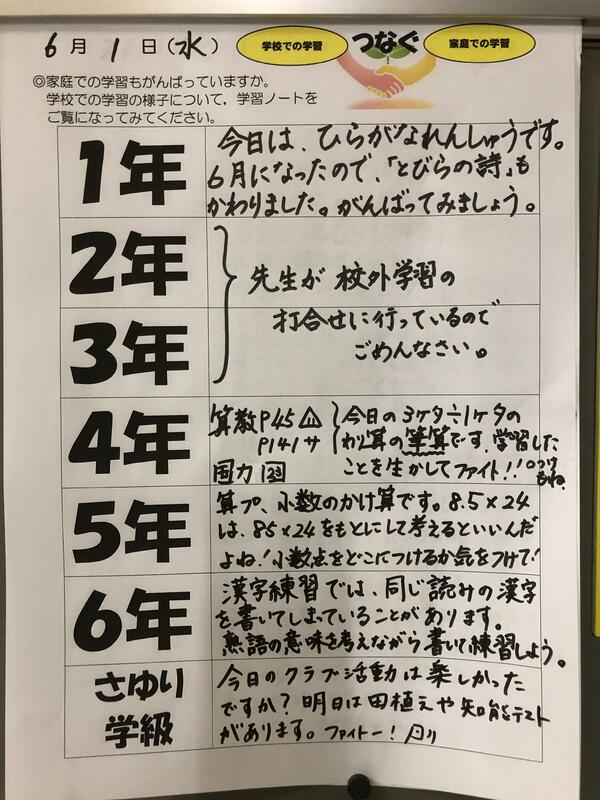 6月1日(水)
学校での学習
つなぐ
家庭での学習
◎家庭での学習もがんばっていますか。
学校での学習の様子について,学習ノートを
ご覧になってみてください。
1年
今日は、ひらがなれんしゅうです。
6月になったので、「とびらの詩」も
かわりました。がんばってみましょう。
2年
3年
先生が校外学習の
打合せに行っているので
ごめんなさい。
4年
算数P45
P141サ
国力
今日の3ケタ÷1ケタの
わり算の筆算です。学習した
ことを生かしてファイト!!
5年
算プ、小数のかけ算です。8.5×24
は、85×24をもとにして考えるといいんだ
よね!小数点をどこにつけるか気をつけて!
6年
漢字練習では、同じ読みの漢字
を書いてしまっていることがあります。
熟語の意味を考えながら書いて練習しよう。
さゆり
学級
今日のクラブ活動は楽しかった
ですか?明日は田植えや知能テスト
があります。ファイトー!